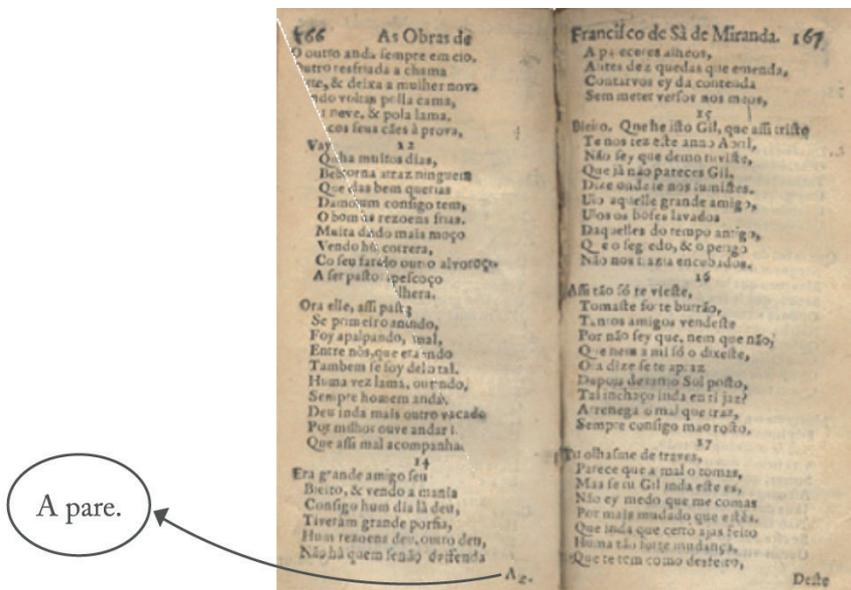 A pare.
166 As Obras de
O outro anda sempre em cio,
Outro resfriada a chama
& deixa a mulher nova
voltas polla cama,
neve, & pola lama,
cos seus cães à prova,
12
Vay
Qu ha muitos dias,
ninguem
Que das bem querias
consigo tem,
O bom rezoens frias.
Muita dado mais moço
Vendo hũ correra,
Co seu fardo outro alvoroço
A ser pasto pescoço
lhera.
Ora elle, assi
Se primeiro
Foy apalpando, mal,
Entre nòs, que
Tambem se foy delo tal.
Huma vez lama,
Sempre homem anda.
Deu inda mais outro vacado
Por milhor ouve andar
Que assi mal acompanha
14
Era grande amigo seu
Bieito, & vendo a mania
Consigo hum dia là deu,
Tiveram grande porfia,
Hum rezoens deu, outro deu,
Não hà quem senão defenda
Francisco de Sà de Miranda. 167
A pareceres alheos,
Antes dez quedas que emenda,
Contarvos ey da contenda
Sem meter versos nos meos,
15
Bieito. Que he isto Gil, que assi triste
Te nos fez este anno Abril,
Não sey que demo tu viste,
Que jà não pareces Gil.
Dize onde te nos sumistes.
aquelle grande amigo,
os bofes lavados
Daquelles do tempo antigo,
Que o segredo, & o perigo
Não nos trazia encubados.
16
Assi tão sò te vieste,
Tomaste forte burrão,
Tantos amigos vendeste
Por não sey que, nem que não,
Que nem a mi sò o dixeste,
Ora dize se te apraz
Depois Sol posto,
Tal inchaço inda en ti jaz?
Arrenega o mal que traz,
Sempre consigo mao rosto.
17
Tu olhasme de traves,
Parece que a mal o tomas,
Mas se tu Gil inda este es,
Não ey medo que me comas
Por mais mudado que estès.
Que inda que certo ajas feito
Huma tão forte mudança,
Que te tem como desfeito,
Deste